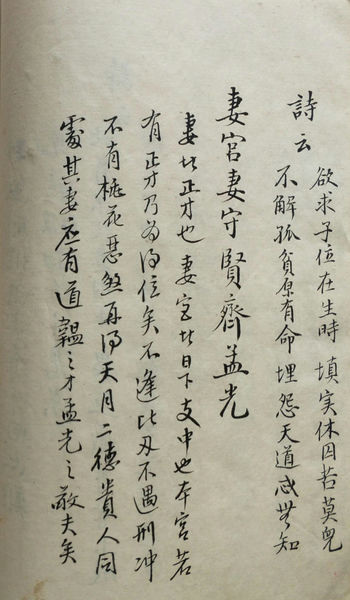 詩云
欲求子位在生時 填实休囚苦莫
不解孤貧原有命 埋怨天道忒無知
妻宮妻守賢齊孟光
妻者正才也妻宮者日下支中也本宮若
有正才乃為得位矣不逢比刃不遇刑冲
不有桃花惡煞再得天月二德貴人同
處其妻应有道韞之才孟光之敬夫矣